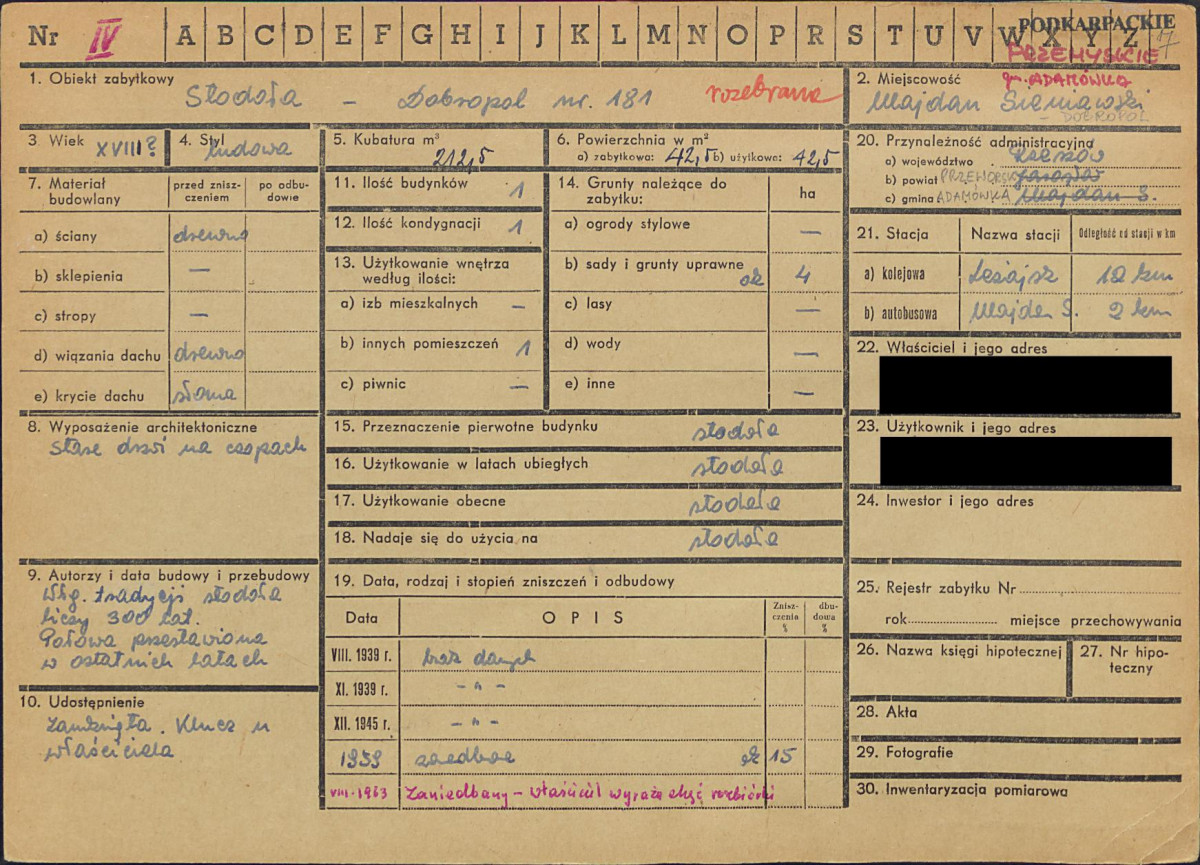 Nr IV A B C D E F G H I J K L M N O P R S T U V W X Y Z
PODKARPACKIE
PRZEMYSKIE
gm. ADAMÓWKA
1. Obiekt zabytkowy
Stodoła – Dobropol nr. 181 rozebrana
2. Miejscowość
Majdan Sieniawski
– DOBROPOL
3. Wiek XVIII?
4. Styl ludowa
5. Kubatura m³
212,5
6. Powierzchnia w m²
a) zabytkowa: 42,5 b) użytkowa: 42,5
7. Materiał budowlany
przed zniszczeniem
po odbudowie
a) ściany drewno
b) sklepienia —
c) stropy —
d) wiązania dachu drewno
e) krycie dachu słoma
8. Wyposażenie architektoniczne
Stare drzwi na czopach
9. Autorzy i data budowy i przebudowy
Wg. tradycji stodoła
liczy 300 lat.
Połowa przestawiona
w ostatnich latach
10. Udostępnienie
Zamknięta. Klucz u
właściciela
11. Ilość budynków 1
12. Ilość kondygnacji 1
13. Użytkowanie wnętrza
według ilości:
a) izb mieszkalnych —
b) innych pomieszczeń 1
c) piwnic —
14. Grunty należące do
zabytku: ha
a) ogrody stylowe —
b) sady i grunty uprawne ok 4
c) lasy —
d) wody —
e) inne —
15. Przeznaczenie pierwotne budynku stodoła
16. Użytkowanie w latach ubiegłych stodoła
17. Użytkowanie obecne stodoła
18. Nadaje się do użycia na stodoła
19. Data, rodzaj i stopień zniszczeń i odbudowy
Data OPIS Zniszczenia % dbudowa %
VIII. 1939 r. brak danych
XI. 1939 r. – „ –
XII. 1945 r. – „ –
1959 ok 15
VIII-1963 Zaniedbany – właściciel wyraża chęć rozbiórki
20. Przynależność administracyjna
a) województwo Rzeszów
b) powiat PRZEWORSK Jarosław
c) gmina ADAMÓWKA Majdan S.
21. Stacja Nazwa stacji Odległość od stacji w km
a) kolejowa Leżajsk 12 km
b) autobusowa Majdan S. 2 km
22. Właściciel i jego adres
23. Użytkownik i jego adres
24. Inwestor i jego adres
25. Rejestr zabytku Nr
rok miejsce przechowywania
26. Nazwa księgi hipotecznej
27. Nr hipoteczny
28. Akta
29. Fotografie
30. Inwentaryzacja pomiarowa